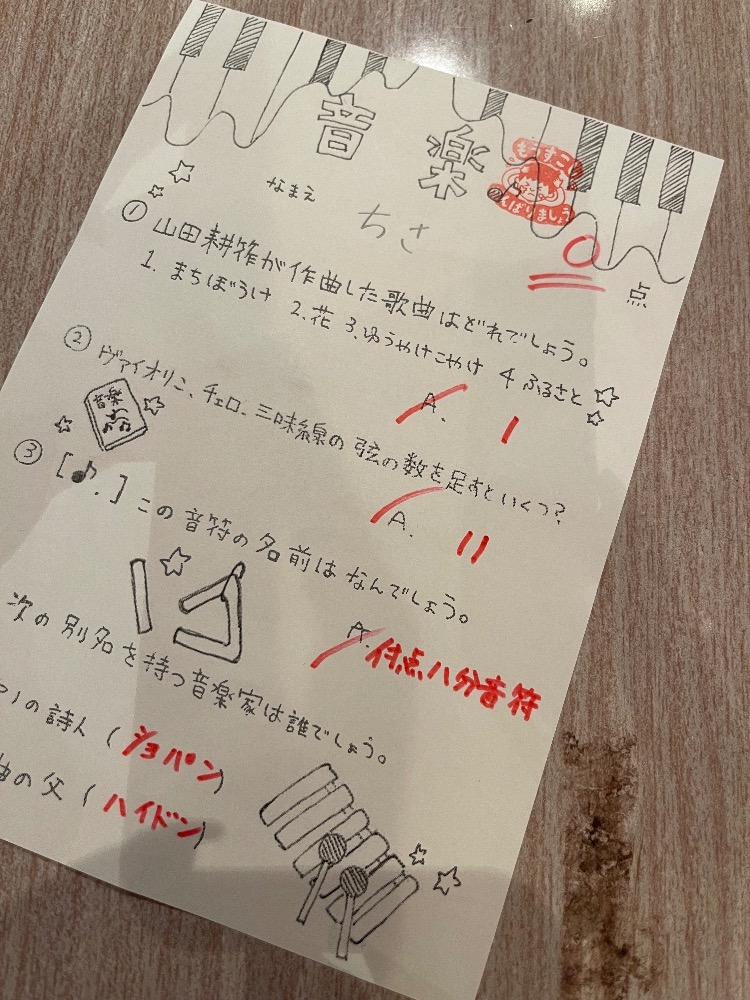 音楽
もうすこし
がんばりましょう
なまえ
ちさ
0
点
① 山田耕筰が作曲した歌曲はどれでしょう。
1. まちぼうけ 2.花 3.ゆうやけこやけ 4 ふるさと
A. 1
② ヴァイオリン、チェロ、三味線の弦の数を足すといくつ?
A. 11
音楽
③ [♪.]この音符の名前はなんでしょう。
A. 付点八分音符
次の別名を持つ音楽家は誰でしょう。
ノの詩人(ショパン)
曲の父(ハイドン)